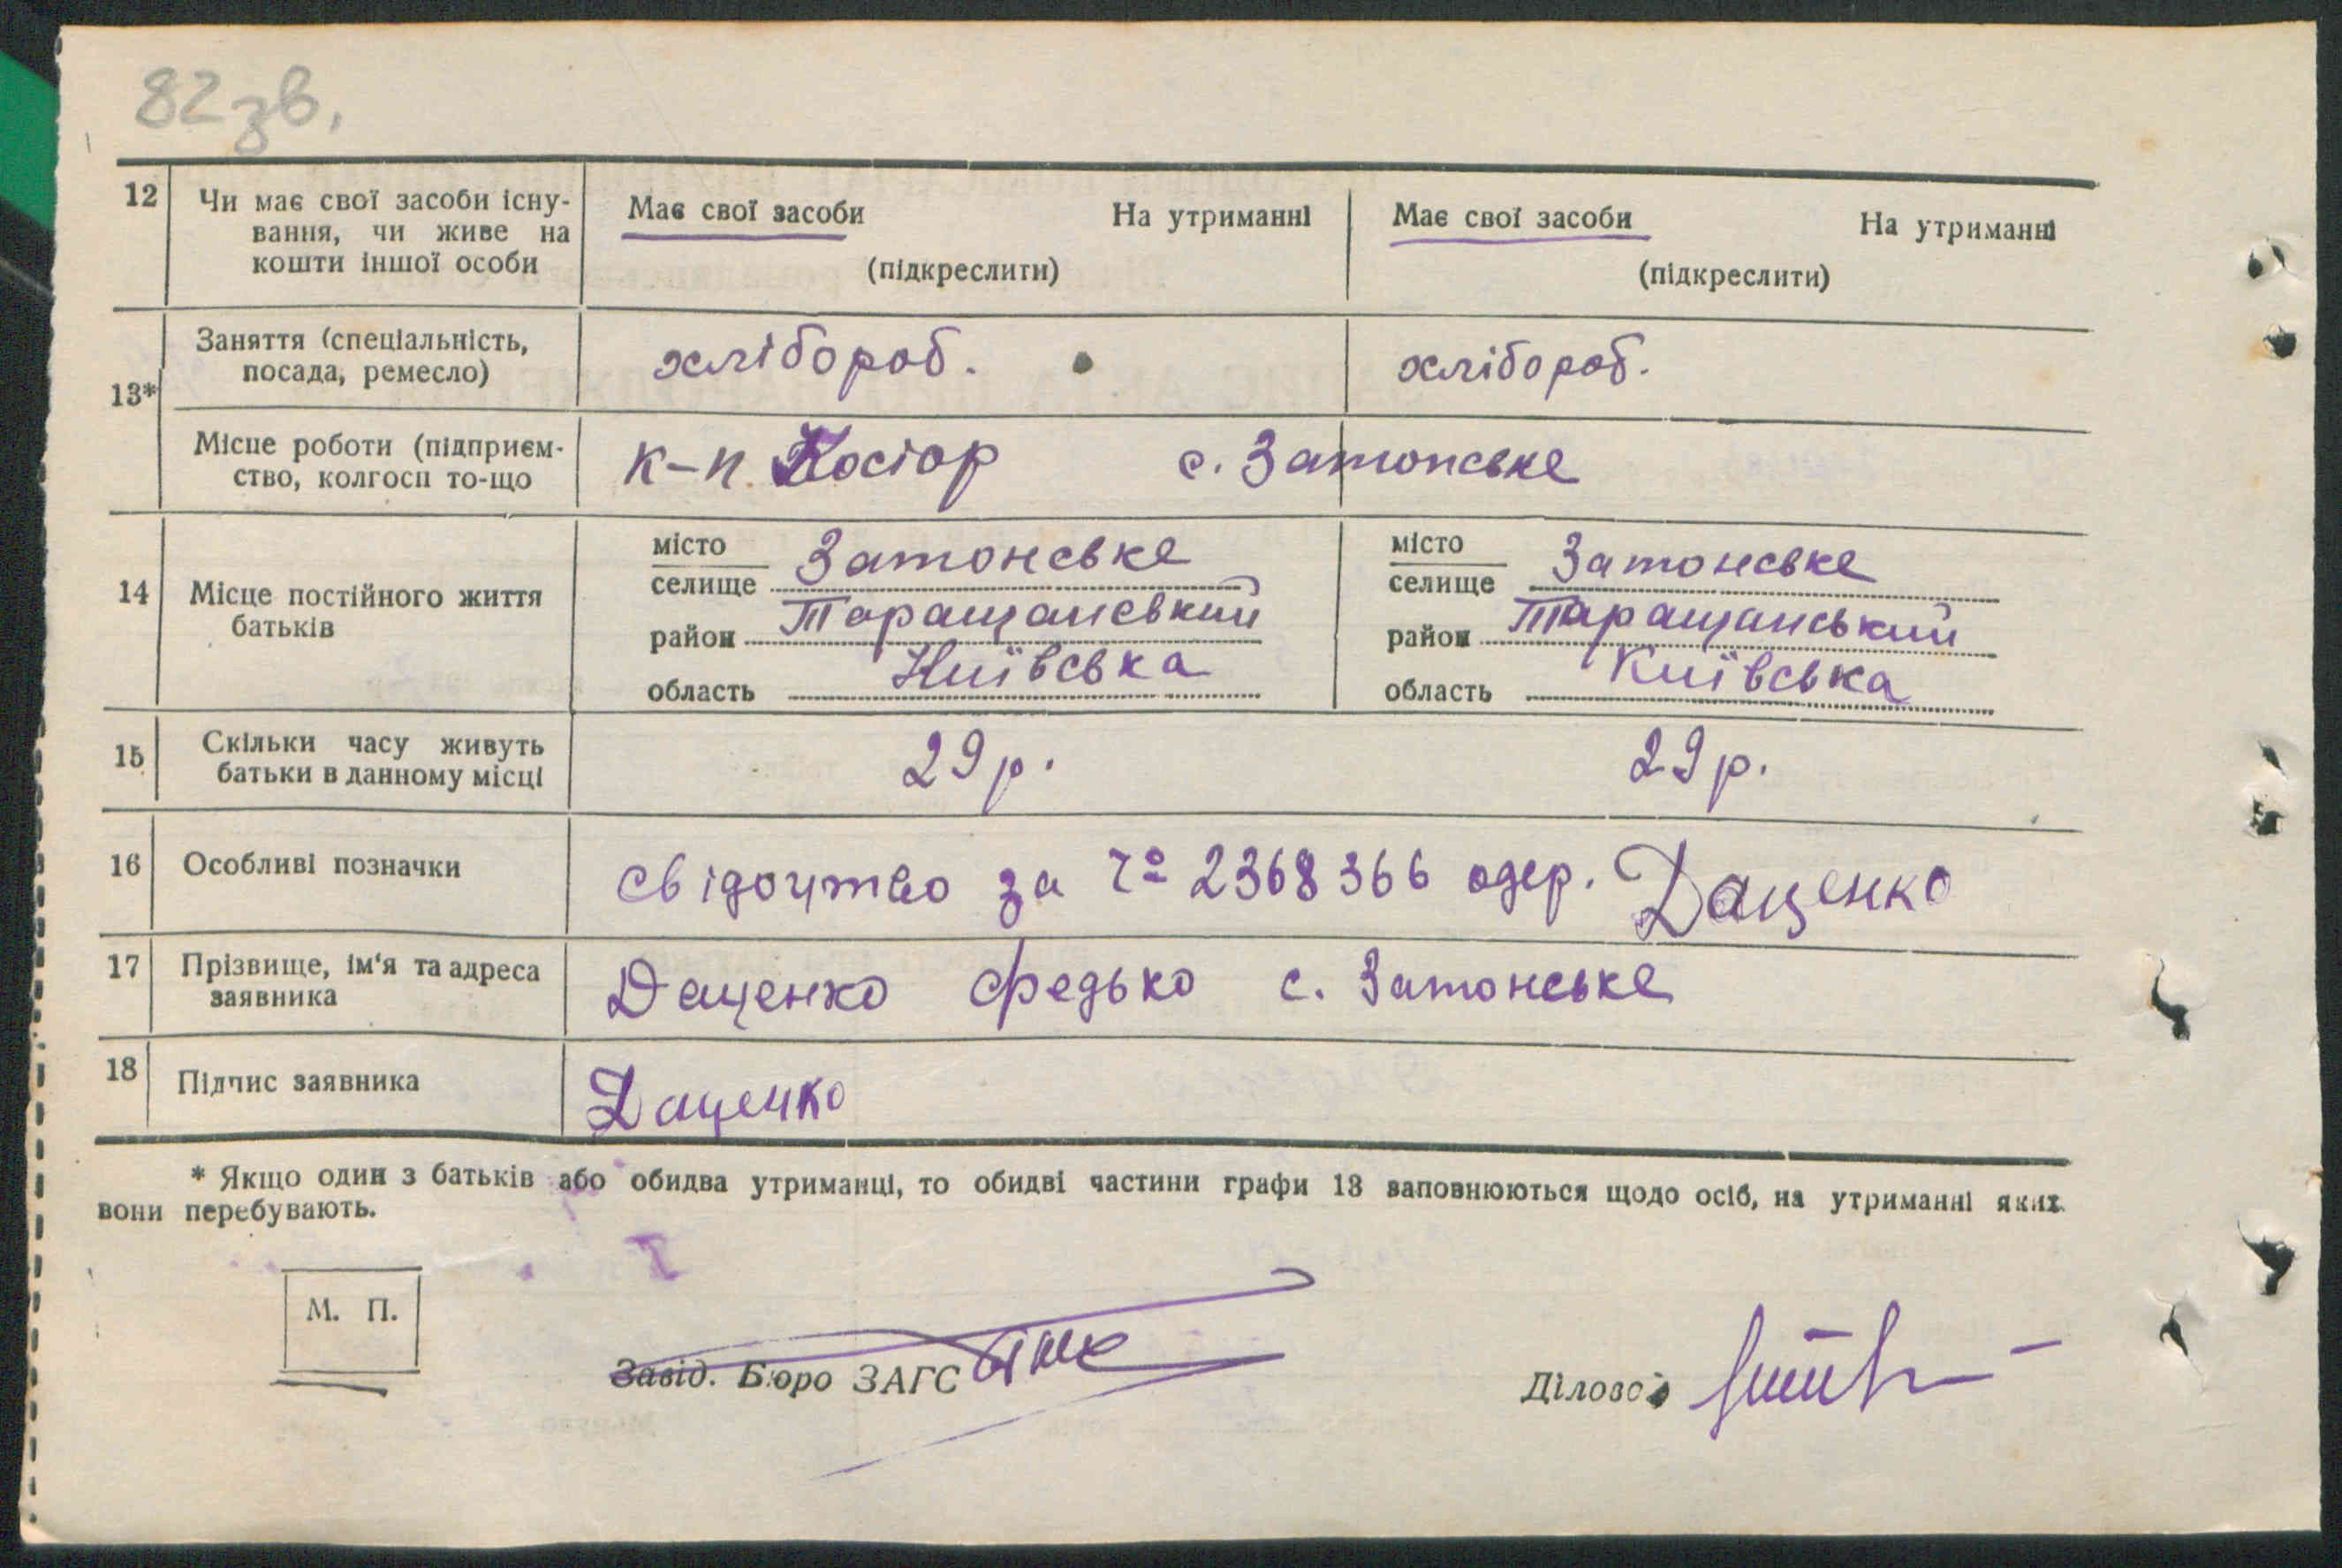 82 зв.
12 Чи має свої засоби існу-
вання, чи живе на
кошти іншої особи
Має свої засоби На утриманні
(підкреслити)
Має свої засоби На утриманні
(підкреслити)
13*
Заняття (спеціальність,
посада, ремесло)
хлібороб.
хлібороб.
Місце роботи (підприєм-
ство, колгосп то-що
к-п. Косіор с. Затонське
14 Місце постійного життя
батьків
місто
селище Затонське
район Таращанський
область Київська
місто
селище Затонське
район Таращанський
область Київська
15 Скільки часу живуть
батьки в данному місці
29 р.
29 р.
16 Особливі позначки
свідоцтво за № 2368366 одер. Даценко
17 Прізвище, ім'я та адреса
заявника
Даценко Федько с. Затонське
18 Підпис заявника
Даценко
* Якщо один з батьків або обидва утриманці, то обидві частини графи 13 заповнюються щодо осіб, на утриманні яких
вони перебувають.
М. П.
Завід. Бюро ЗАГС
Діловод